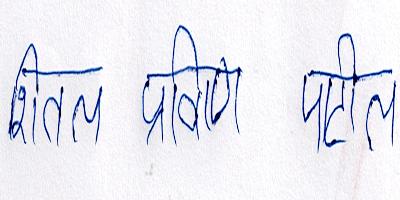 शितल प्रविण पाटील